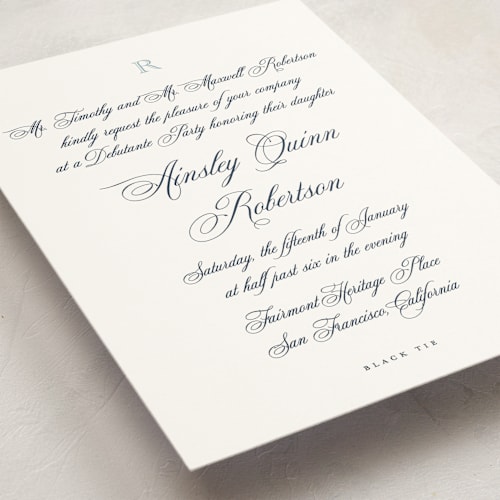 R
Mr. Timothy and Mr. Maxwell Robertson
kindly request the pleasure of your company
at a Debutante Party honoring their daughter
Ainsley Quinn
Robertson
Saturday, the fifteenth of January
at half past six in the evening
Fairmont Heritage Place
San Francisco, California
BLACK TIE